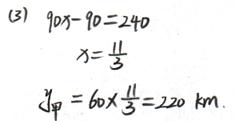 (3) 90x-90=240
x=11/3
y甲=60×11/3=220 km.